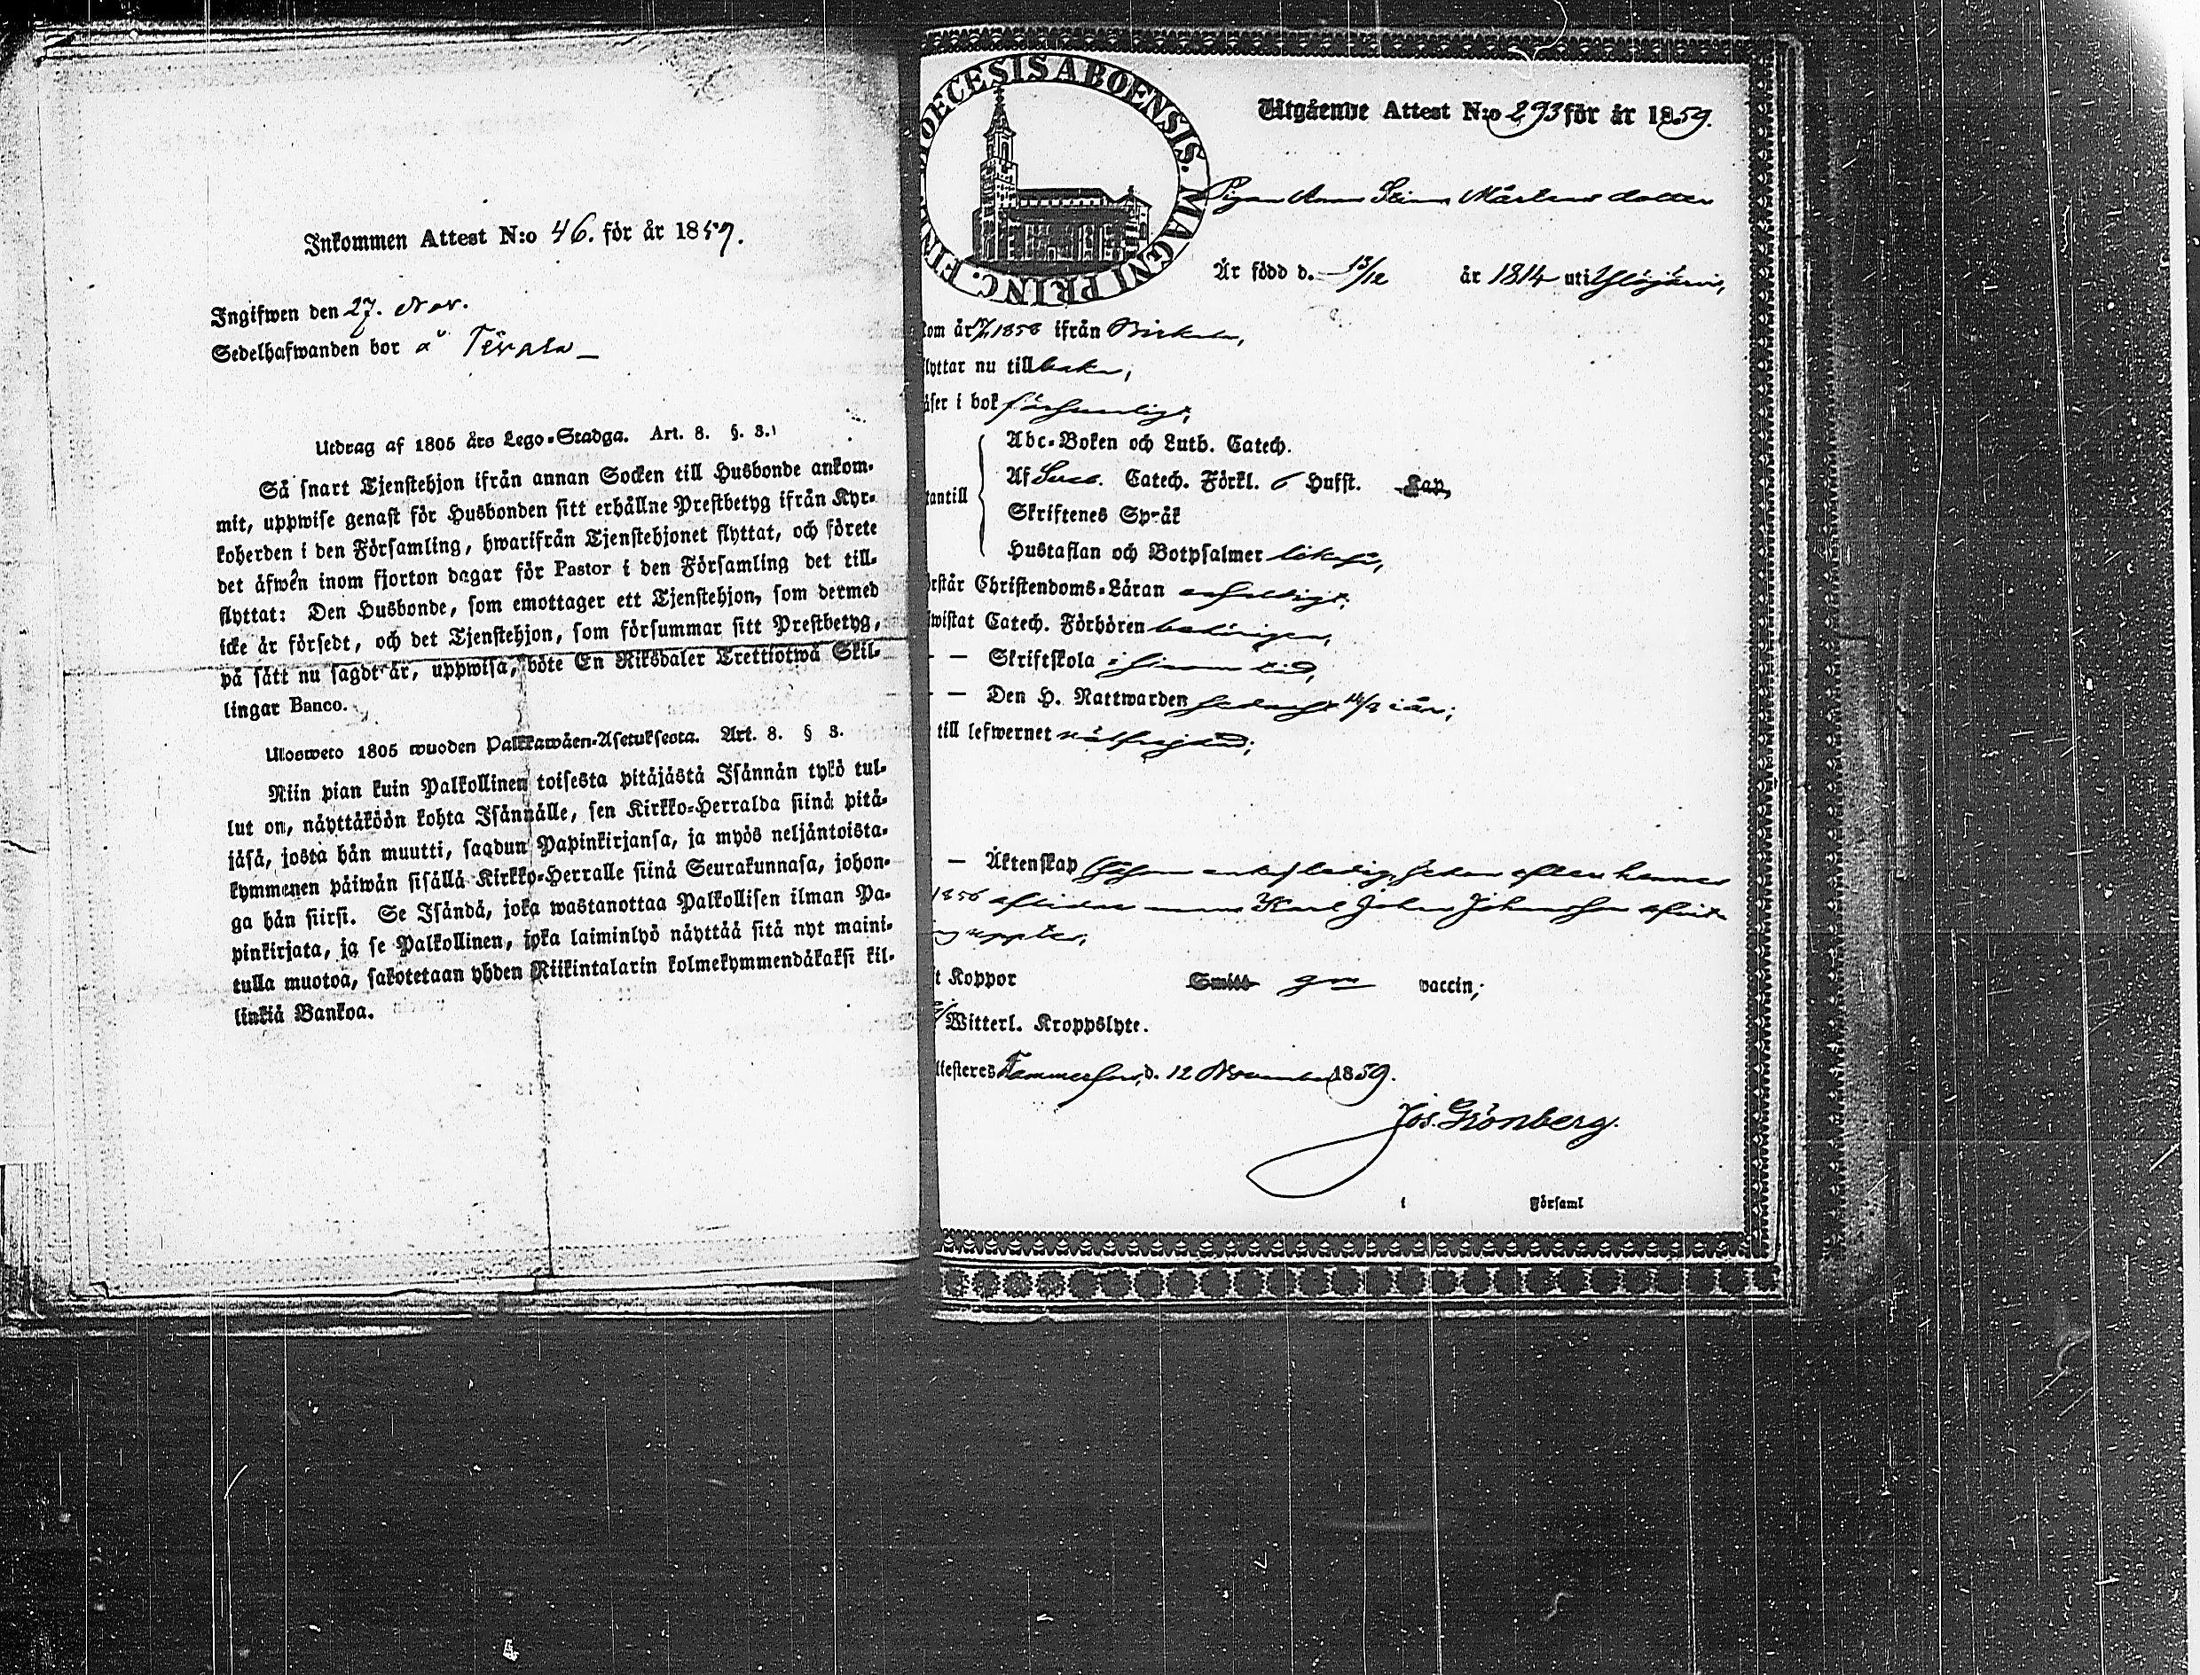 Inkommen Attest N:o 46. för år 1859.
Ingifwen den 27. Nov.
Sedelhafwanden bor å Terala
Utdrag af 1805 års Lego-Stadga. Art. 8. §. 3.
Så snart Tjenstehjon ifrån annan Socken till Husbonde ankom-
mit, uppwise genast för Husbonden sitt erhållne Prestbetyg ifrån Kyr-
koherden i den Församling, hwarifrån Tjenstehjonet flyttat, och förete
det äfwen inom fjorton dagar för Pastor i den Församling det till-
flyttat: Den Husbonde, som emottager ett Tjenstehjon, som dermed
icke är försedt, och det Tjenstehjon, som försummar sitt Prestbetyg,
på sätt nu sagdt är, uppwisa, böte En Riksdaler Trettiotwå Skil-
lingar Banco.
Ulosweto 1805 wuoden Palkkawäen-Asetuksesta. Art. 8. § 3.
Niin pian kuin Palkollinen toisesta pitäjästä Isännän tykö tul-
lut on, näyttäköön kohta Isännälle, sen Kirkko-Herralda siinä pitä-
jäsä, josta hän muutti, saadun Papinkirjansa, ja myös neljäntoista-
kymmenen päiwän sisällä Kirkko-Herralle siinä Seurakunnasa, johon-
ga hän siirsi. Se Isändä, joka wastanottaa Palkollisen ilman Pa-
pinkirjata, ja se Palkollinen, joka laiminlyö näyttää sitä nyt maini-
tulla muotoa, sakotetaan yhden Riikintalarin kolmekymmendäkaksi kil-
linkiä Bankoa.
DIOECESIS ABOENSIS. MAGNI PRINC. FINL
Utgående Attest N:o 293 för år 1859.
Pigan Anna Stina Mårtens dotter
Är född d. 13/12 år 1814 uti Ylöjärvi,
kom år 1858 ifrån Birkala,
flyttar nu tillbaka,
läser i bok försvarligt,
Abc-Boken och Luth. Catech.
Af Sveb. Catech. Förkl. 6 Hufst. Kap,
utantill
Skriftenes Språk
Hustaflan och Botpsalmer likaså,
förstår Christendoms-Läran enfaldigt,
bewistat Catech. Förhören behörigen,
— — Skriftskola i sinom tid,
— — Den H. Nattwarden senast i år;
till lefwernet välfrejdad;
— Äktenskap såsom enka ledig, sedan efter hennes
1856 aflidne man Karl Johan Johansson afvit-
tring uppter,
t Koppor Smitt- gm vaccin;
Witterl. Kroppslyte.
Attesteres Tammerfors, d. 12 November 1859.
Jos. Grönberg.
i Församl